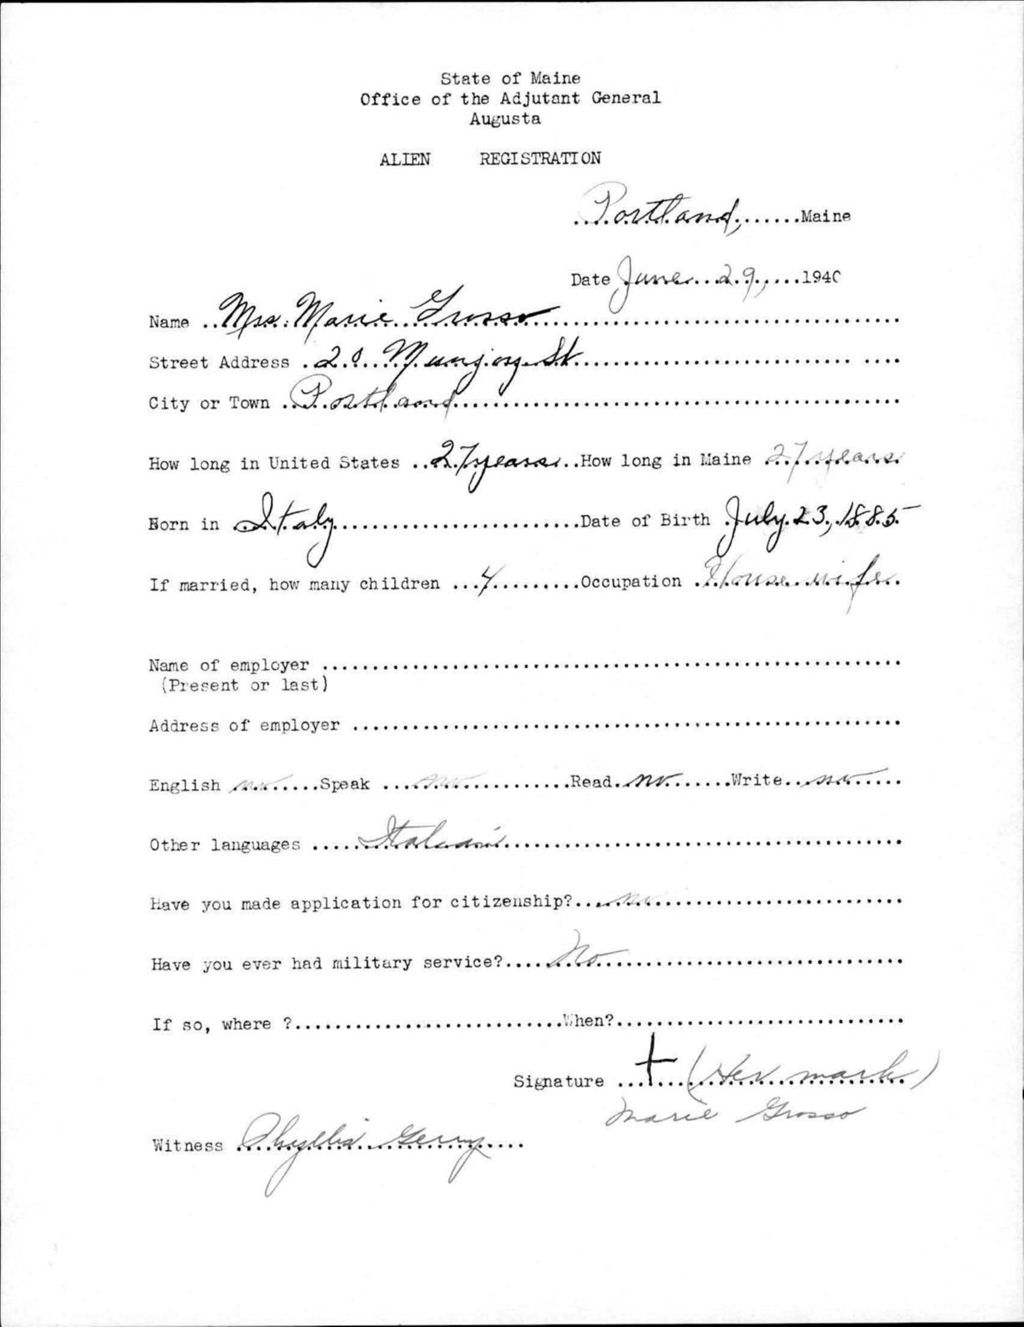 State of Maine
Office of the Adjutant General
Augusta
ALIEN REGISTRATION
Portland, Maine
Date June 29, 1940
Name Mrs. Marie Grosso
Street Address 20 Munjoy St
City or Town Portland
How long in United States 27 years How long in Maine 27 years
Born in Italy Date of Birth July 23, 1885
If married, how many children 4 Occupation House wife
Name of employer
(Present or last)
Address of employer
English no Speak no Read no Write no
Other languages Italian
Have you made application for citizenship? no
Have you ever had military service? No
If so, where ? When?
Signature + (Her mark)
Marie Grosso
Witness Phyllis Gerry